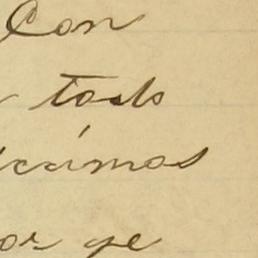 Con
todo
icimos
or qe